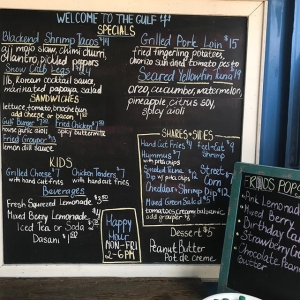 WELCOME TO THE GULF
SPECIALS
Blackend Shrimp Tacos $14
aji mojo slaw, chimi churri,
cilantro, pickled peppers
Snow Crab Legs
1 lb, Korean cocktail sauce,
marinated papaya salad
SANDWICHES
lettuce, tomato, brioche bun
add cheese or bacon
Gulf Burger
house garlic aiolis
Fried Chicken
spicy buttermilk
Fried Grouper
lemon dill sauce
KIDS
Grilled Cheese $7
with hand cut fries
Chicken Tenders $7
with hand cut fries
Beverages
Fresh Squeezed Lemonade
Mixed Berry Lemonade
Iced Tea or Soda
Dasani $1
Happy
Hour
MON-FRI
2-6PM
Grilled Pork Loin $15
fried fingerling potatoes,
chorizo sundried tomato pesto
Seared Yellowfin Tuna
orzo, cucumber, watermelon,
pineapple citrus soy,
spicy aioli
SHARES + SIDES
Hand Cut Fries $4
Hummus $7
with pita chips
Smoked Tuna
Dip w/ pita chips
Cheddar Shrimp Dip $12
Mixed Green Salad $5
tomatoes, cream balsamic
add grouper
Peel + Eat
Shrimp
Street
Corn
Dessert $5
Peanut Butter
Pot de creme
POPS
Pink Lemonade
Mixed Berry
Birthday
Strawberry
Chocolate Peanut
Butter